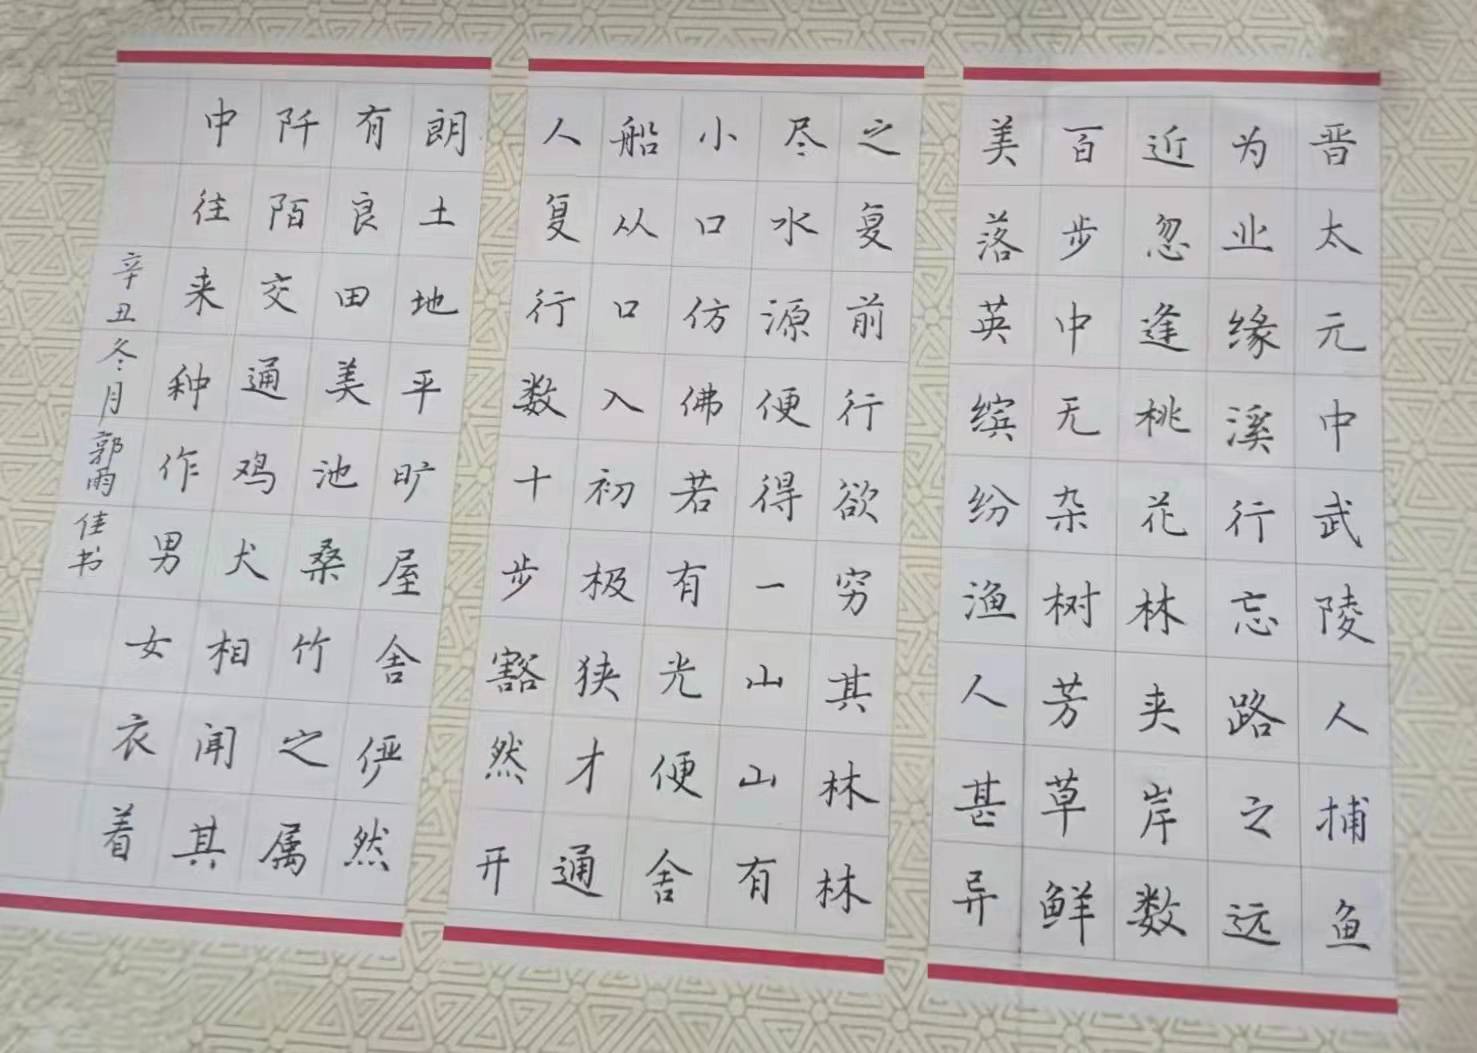 晋太元中武陵人捕鱼
为业缘溪行忘路之远
近忽逢桃花林夹岸数
百步中无杂树芳草鲜
美落英缤纷渔人甚异
之复前行欲穷其林林
尽水源便得一山山有
小口仿佛若有光便舍
船从口入初极狭才通
人复行数十步豁然开
朗土地平旷屋舍俨然
有良田美池桑竹之属
阡陌交通鸡犬相闻其
中往来种作男女衣着
辛丑冬月郭雨佳书